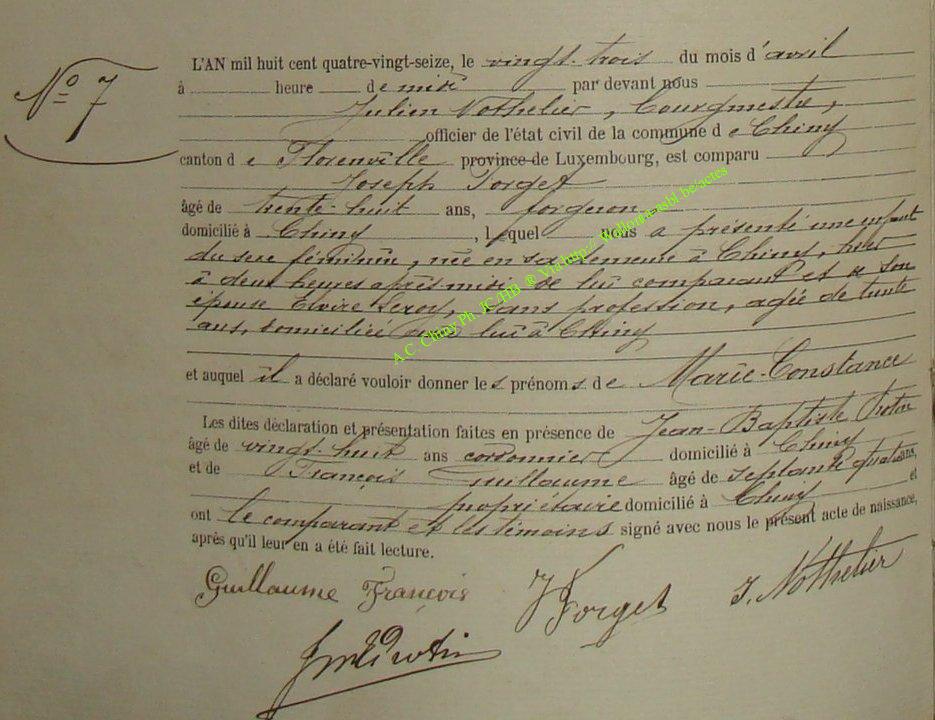 N° 7
L'AN mil huit cent quatre-vingt-seize, le vingt-trois du mois d'avril
à heure de midi par devant nous
Julien Nothelier, Bourgmestre,
officier de l'état civil de la commune de Chiny
canton de Florenville province de Luxembourg, est comparu
Joseph Forget
âgé de trente-huit ans, forgeron
domicilié à Chiny, lequel nous a présenté une enfant
du sexe féminin, née en sa demeure à Chiny, hier
à deux heures après-midi, de lui comparant et de son
épouse Elvire Leroy, sans profession, agée de trente
ans, domiciliée avec lui à Chiny
et auquel il a déclaré vouloir donner les prénoms de Marie-Constance
Les dites déclaration et présentation faites en présence de Jean-Baptiste
âgé de vingt-huit ans cordonnier domicilié à Chiny
et de François Guillaume âgé de septante quatre ans,
propriétaire domicilié à Chiny et
ont le comparant et les témoins signé avec nous le présent acte de naissance,
après qu'il leur en a été fait lecture.
Guillaume François J Forget J. Nothelier
A.C. Chiny Ph. JC/HB ® Via http:// Wallonia-asbl.be/actes